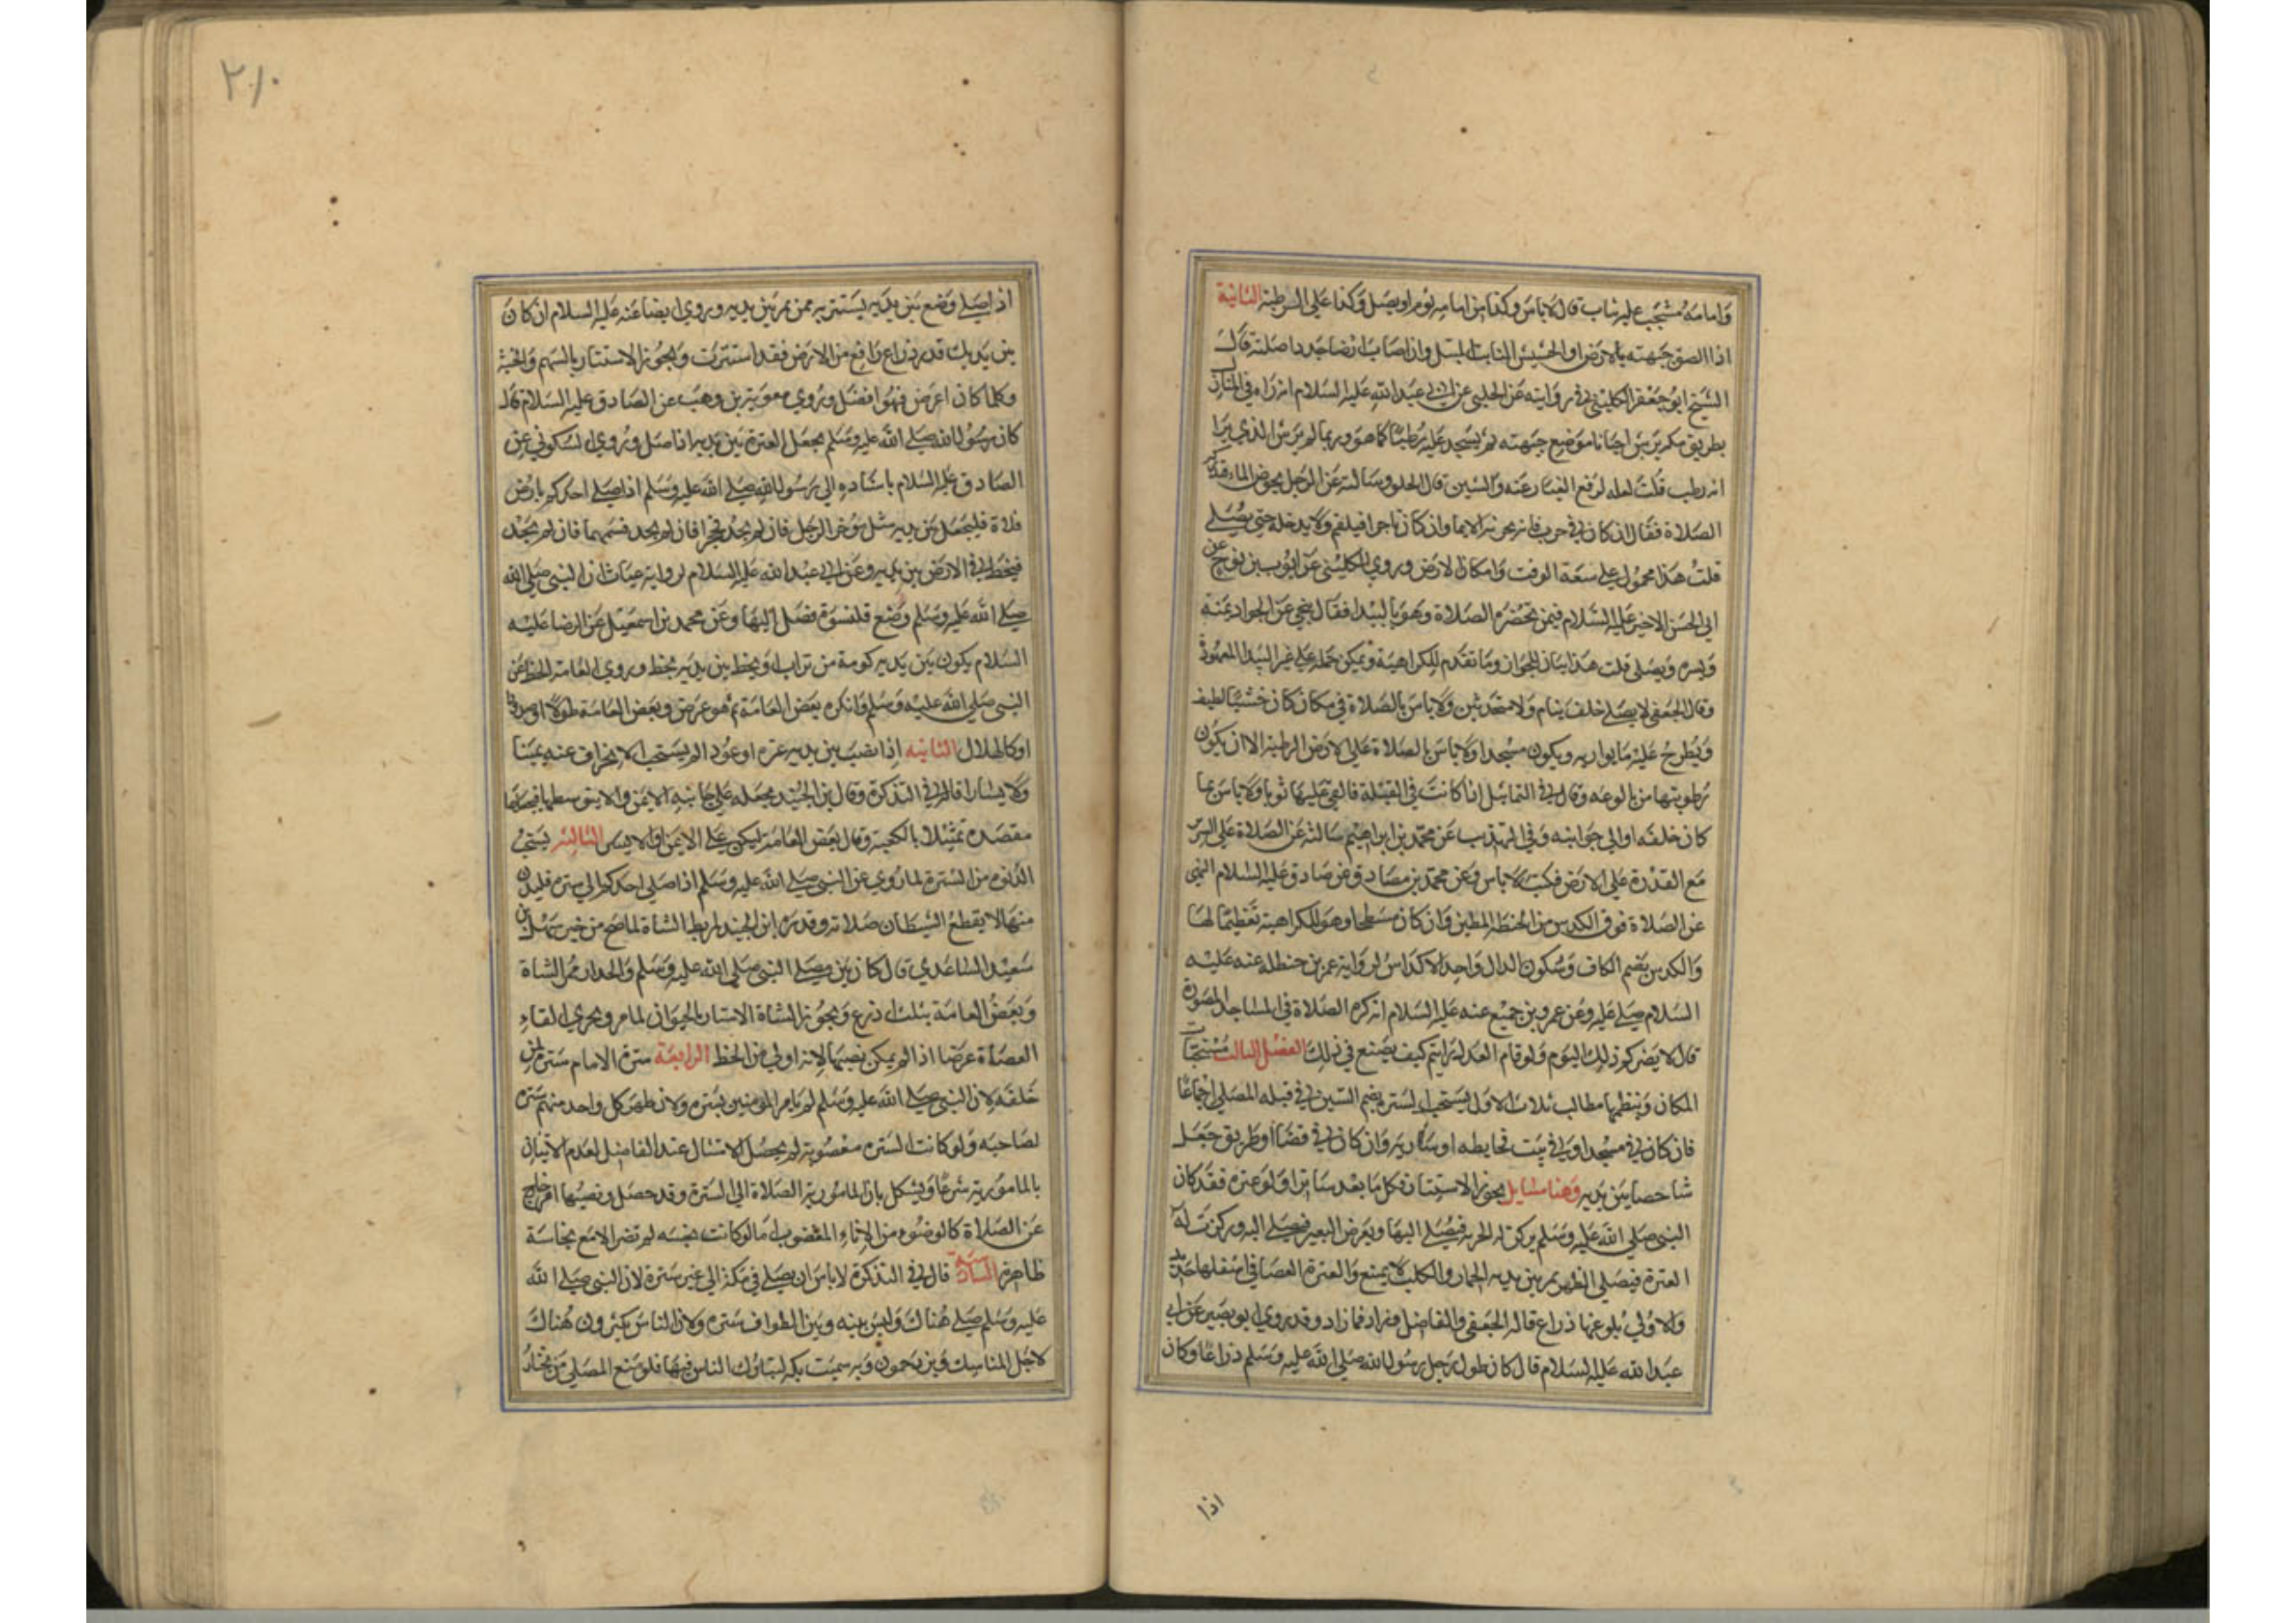 وامامه مشجب عليه ثياب قال لا باس وكذا من امامه ثوم او بصل وكذا على الرطبة الثانية
اذا الصق جبهته بالارض او الحشيش النابت المبتل واذا اصاب ارضا جددا صلته قال
الشيخ ابو جعفر الكليني في روايته عن الحلبي عن ابي عبد الله عليه السلام انه راه في المنازل
بطريق مكة يرش احيانا موضع جبهته ثم يسجد عليه رطبا كما هو وربما لم يرش الذي يرا
انه رطب قلت لعله لرفع الغبار عنه والشين قال الحلبي وسالته عن الرجل يخوض الماء فتدركه
الصلاة فقال ان كان في حرب فانه يجزئه الايما وان كان تاجرا فليقم ولا يدخله حتى يصلي
قلت هذا محمول على سعة الوقت وامكان الارض وروى الكليني عن ايوب بن نوح عن
ابي الحسن الاخير عليه السلام فيمن تحضره الصلاة وهو بالبيدا فقال يتنحى عن الجواد يمنه
ويسره ويصلى قلت هذا بيان للجواز وما تقدم للكراهية ويمكن حمله على غير البيدا المعهودة
وقال الجعفي لا يصلي خلف نيام ولا متحدثين ولا باس بالصلاة في مكان كان حشا اذا نظف
ويطرح عليه ما يواريه ويكون مسجدا ولا باس بالصلاة على الارض الرطبة الا ان يكون
رطوبتها من بالوعه وقال في التماثيل اذا كانت في القبلة فالق عليها ثوبا ولا باس بما
كان خلفه او الى جوانبه وفي التهذيب عن محمد بن ابراهيم سالته عن الصلاة على السرير
مع القدرة على الارض فكتب لا باس وعن محمد بن مصادف عن صادق عليه السلام النهي
عن الصلاة فوق الكدس من الحنطة المطين وان كان مسطحا وهو للكراهية تعظيما لها
والكدس بضم الكاف وسكون الدال واحد الاكداس لرواية عمر بن حنظله عنه عليه
السلام صلي عليه وعن عمرو بن جميع عنه عليه السلام انه كره الصلاة في المساجد المصورة
قال لا يضركم ذلك اليوم ولو قام العدل لرايتم كيف يصنع في ذلك الفصل الثالث مستحبات
المكان وينظمها مطالب ثلاث الاول يستحب الستره بضم السين في قبله المصلي اجماعا
فان كان في مسجد او في بيت فحايطه او ساريه وان كان في فضا او طريق جعل
شاخصا بين يديه وهنا مسايل يجوز الاستتار بكل ما يعد ساترا ولو عنزه فقد كان
النبي صلى الله عليه وسلم يركز له الحربه فيصلي اليها ويعرض البعير فيصلي اليه وركزت له
العنزة فيصلى الظهر يمر بين يديه الحمار والكلب لا يمنع والعنزة العصا في اسفلها حديد
والاولى بلوغها ذراع قاله الجعفي والفاضل وزاد فما زاد وقد روى ابو بصير عن ابي
عبد الله عليه السلام قال كان طول رحل رسول الله صلى الله عليه وسلم ذراعا وكان
اذا
٢١٠
اذا صلى وضع بين يديه يستتر به ممن يمر بين يديه وروى ايضا عنه عليه السلام ان كان
بين يديك قدر ذراع رافع من الارض فقد استترت ويجوز الاستتار بالسهم والخشبة
وكلما كان اعرض فهو افضل وروى معوية بن وهب عن الصادق عليه السلام قال
كان رسول الله صلى الله عليه وسلم يجعل العنزة بين يديه اذا صلى وروى السكوني عن
الصادق عليه السلام باسناده الى رسول الله صلى الله عليه وسلم اذا صلى احدكم بارض
فلاة فليجعل بين يديه مثل موخر الرحل فان لم يجد فحجرا فان لم يجد فسهما فان لم يجد
فيخط في الارض بين يديه وعن ابي عبد الله عليه السلام لرواية غياث ان النبي صلى الله
صلى الله عليه وسلم وضع قلنسوة فصلى اليها وعن محمد بن اسمعيل عن الرضا عليه
السلام يكون بين يديه كومة من تراب او يخط بين يديه بخط وروى العامه الخط عن
النبي صلى الله عليه وسلم وانكره بعض العامة ثم هو عرض وبعض العامة طولا او مدورا
او كالهلال الثانيه اذا نصب بين يديه عنزه او عودا لم يستحب الانحراف عنه يمينا
ولا يسارا قاله في التذكرة وقال بن الجنيد يجعله على جانبه الايمن ولا يتوسطها فيجعلها
مقصده تمثيلا بالكعبة وقال بعض العامة ليكن على الايمن او الايسر الثالثه يستحب
الدنو من السترة لما روى عن النبي صلى الله عليه وسلم اذا صلى احدكم الى ستره فليدن
منها لا يقطع الشيطان صلاته وقدره ابن الجنيد بمربط الشاة لما صح من خبر سهل بن
سعيد الساعدي قال كان بين مصلى النبي صلى الله عليه وسلم والجدار ممر الشاة
وبعض العامة بثلث اذرع ويجوز الاستتار بالحيوان لما مر ويجزى القاء
العصاة عرضا اذا لم يمكن نصبها لانه اولى من الخط الرابعة سترة الامام سترة لمن
خلفه لان النبي صلى الله عليه وسلم لم يامر المومنين بستره ولان ظهر كل واحد منهم ستره
لصاحبه ولو كانت الستره مغصوبة لم يحصل الامتثال عند الفاضل لعدم الاتيان
بالمامور به شرعا ويشكل بان المامور به الصلاة الى السترة وقد حصل ونصبها امر خارج
عن الصلاة كالوضوء من الاناء المغضوب اما لو كانت نجسه لم تضر الا مع نجاسة
ظاهرة السادسة قال في التذكرة لا باس ان يصلي في مكة الى غير سترة لان النبي صلى الله
عليه وسلم صلى هناك وليس بينه وبين الطواف سترة ولان الناس يكثرون هناك
لاجل المناسك ويزدحمون وبه سميت بكه لتباك الناس فيها فلو منع المصلي من يجتاز